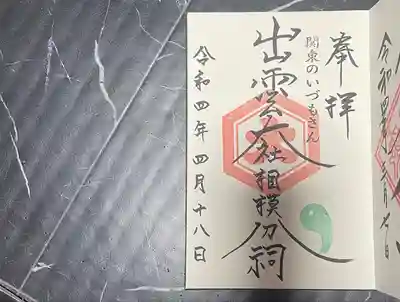 奉拝
関東のいづもさん
出雲大社相模分祠
令和四年四月十八日